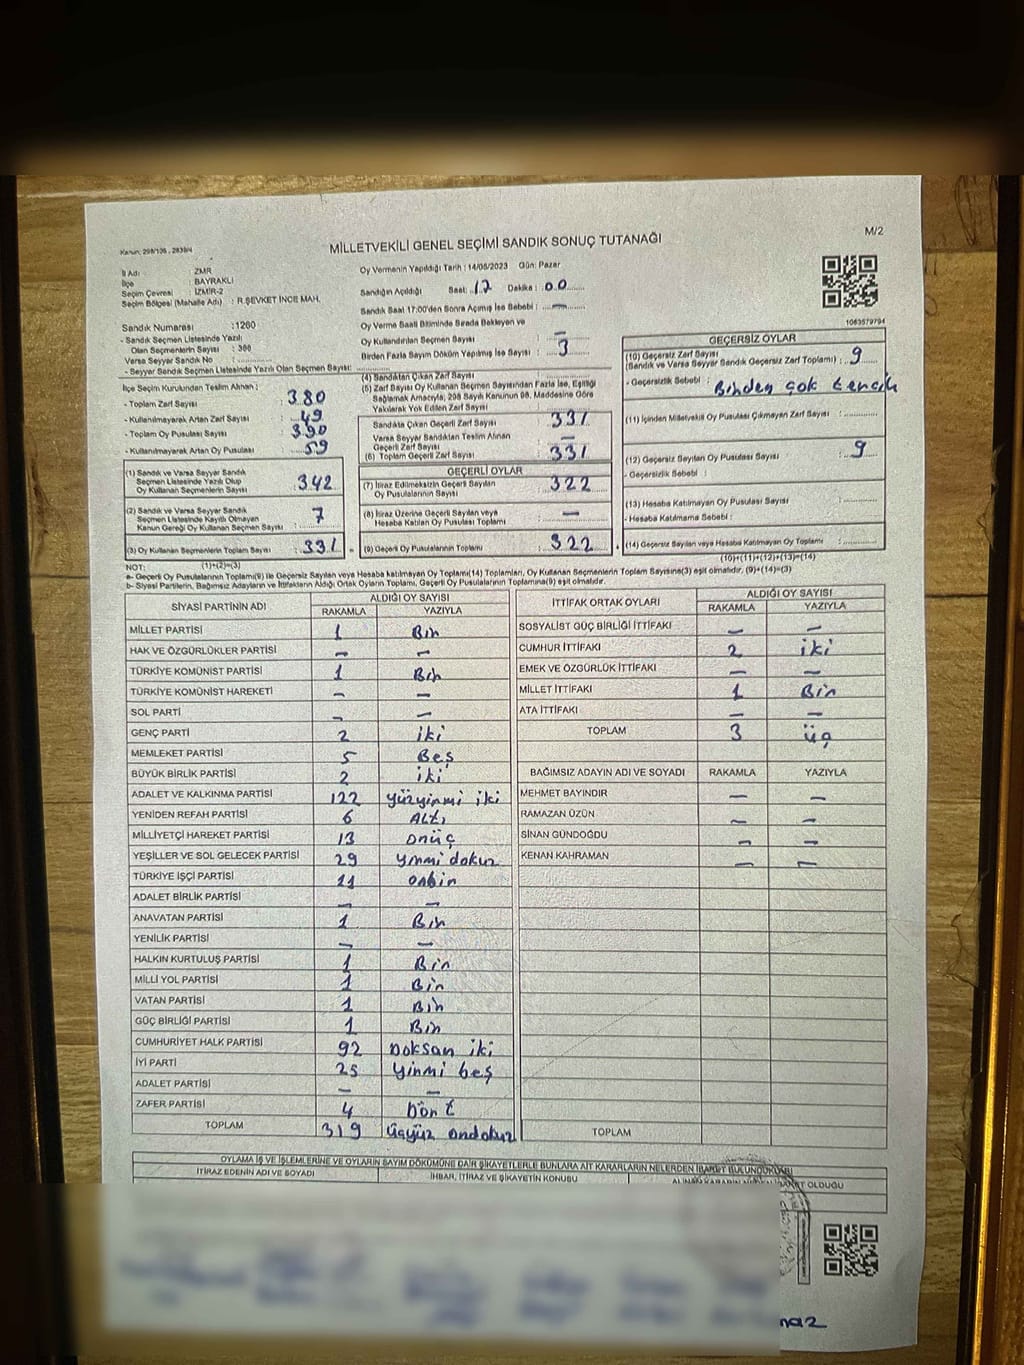 M/2
Kanun: 298/105 , 2839/4
MİLLETVEKİLİ GENEL SEÇİMİ SANDIK SONUÇ TUTANAĞI
İl Adı : ZMR
İlçe : BAYRAKLI
Seçim Çevresi : İZMİR-2
Seçim Bölgesi (Mahalle Adı) : R.ŞEVKET İNCE MAH.
Oy Vermenin Yapıldığı Tarih : 14/05/2023 Gün: Pazar
Sandığın Açıldığı Saat: 17 Dakika : 00
Sandık Saat 17:00'den Sonra Açılmış İse Sebebi : —
Oy Verme Saati Bitiminde Sırada Bekleyen ve
Oy Kullandırılan Seçmen Sayısı : —
Birden Fazla Sayım Döküm Yapılmış İse Sayısı : 3
1063579794
Sandık Numarası : 1260
- Sandık Seçmen Listesinde Yazılı
Olan Seçmenlerin Sayısı : 380
Varsa Seyyar Sandık No :
- Seyyar Sandık Seçmen Listesinde Yazılı Olan Seçmen Sayısı:
İlçe Seçim Kurulundan Teslim Alınan :
- Toplam Zarf Sayısı : 380
- Kullanılmayarak Artan Zarf Sayısı : 49
- Toplam Oy Pusulası Sayısı : 390
- Kullanılmayarak Artan Oy Pusulası : 59
(1) Sandık ve Varsa Seyyar Sandık
Seçmen Listesinde Yazılı Olup
Oy Kullanan Seçmenlerin Sayısı : 342
(2) Sandık ve Varsa Seyyar Sandık
Seçmen Listesinde Kayıtlı Olmayan
Kanun Gereği Oy Kullanan Seçmen Sayısı : 7
(3) Oy Kullanan Seçmenlerin Toplam Sayısı : 331
(1)+(2)=(3)
(4) Sandıktan Çıkan Zarf Sayısı :
(5) Zarf Sayısı Oy Kullanan Seçmen Sayısından Fazla İse, Eşitliği
Sağlamak Amacıyla; 298 Sayılı Kanunun 98. Maddesine Göre
Yakılarak Yok Edilen Zarf Sayısı :
Sandıkta Çıkan Geçerli Zarf Sayısı : 331
Varsa Seyyar Sandıktan Teslim Alınan
Geçerli Zarf Sayısı : —
(6) Toplam Geçerli Zarf Sayısı : 331
GEÇERLİ OYLAR
(7) İtiraz Edilmeksizin Geçerli Sayılan
Oy Pusulalarının Sayısı : 322
(8) İtiraz Üzerine Geçerli Sayılan veya
Hesaba Katılan Oy Pusulası Toplamı : —
(9) Geçerli Oy Pusulalarının Toplamı : 322
GEÇERSİZ OYLAR
(10) Geçersiz Zarf Sayısı
(Sandık ve Varsa Seyyar Sandık Geçersiz Zarf Toplamı) : 9
- Geçersizlik Sebebi : Birden çok tercih
(11) İçinden Milletvekili Oy Pusulası Çıkmayan Zarf Sayısı :
(12) Geçersiz Sayılan Oy Pusulası Sayısı : 9
- Geçersizlik Sebebi :
(13) Hesaba Katılmayan Oy Pusulası Sayısı :
- Hesaba Katılmama Sebebi :
(14) Geçersiz Sayılan veya Hesaba Katılmayan Oy Toplamı :
(10)+(11)+(12)+(13)=(14)
NOT:
a- Geçerli Oy Pusulalarının Toplamı(9) ile Geçersiz Sayılan veya Hesaba katılmayan Oy Toplamı(14) Toplamları, Oy Kullanan Seçmenlerin Toplam Sayısına(3) eşit olmalıdır. (9)+(14)=(3)
b- Siyasi Partilerin, Bağımsız Adayların ve İttifakların Aldığı Ortak Oyların Toplamı, Geçerli Oy Pusulalarının Toplamına(9) eşit olmalıdır.
SİYASİ PARTİNİN ADI ALDIĞI OY SAYISI
RAKAMLA YAZIYLA
MİLLET PARTİSİ 1 Bir
HAK VE ÖZGÜRLÜKLER PARTİSİ — —
TÜRKİYE KOMÜNİST PARTİSİ 1 Bir
TÜRKİYE KOMÜNİST HAREKETİ — —
SOL PARTİ — —
GENÇ PARTİ 2 iki
MEMLEKET PARTİSİ 5 Beş
BÜYÜK BİRLİK PARTİSİ 2 iki
ADALET VE KALKINMA PARTİSİ 122 Yüzyirmi iki
YENİDEN REFAH PARTİSİ 6 Altı
MİLLİYETÇİ HAREKET PARTİSİ 13 onüç
YEŞİLLER VE SOL GELECEK PARTİSİ 29 yirmi dokuz
TÜRKİYE İŞÇİ PARTİSİ 11 onbir
ADALET BİRLİK PARTİSİ — —
ANAVATAN PARTİSİ 1 Bir
YENİLİK PARTİSİ — —
HALKIN KURTULUŞ PARTİSİ 1 Bir
MİLLİ YOL PARTİSİ 1 Bir
VATAN PARTİSİ 1 Bir
GÜÇ BİRLİĞİ PARTİSİ 1 Bir
CUMHURİYET HALK PARTİSİ 92 Doksan iki
İYİ PARTİ 25 Yirmi beş
ADALET PARTİSİ — —
ZAFER PARTİSİ 4 Dört
TOPLAM 319 Üçyüz ondokuz
İTTİFAK ORTAK OYLARI ALDIĞI OY SAYISI
RAKAMLA YAZIYLA
SOSYALİST GÜÇ BİRLİĞİ İTTİFAKI — —
CUMHUR İTTİFAKI 2 iki
EMEK VE ÖZGÜRLÜK İTTİFAKI — —
MİLLET İTTİFAKI 1 Bir
ATA İTTİFAKI — —
TOPLAM 3 üç
BAĞIMSIZ ADAYIN ADI VE SOYADI RAKAMLA YAZIYLA
MEHMET BAYINDIR — —
RAMAZAN ÜZÜN — —
SİNAN GÜNDOĞDU — —
KENAN KAHRAMAN — —
TOPLAM
OYLAMA İŞ VE İŞLEMLERİNE VE OYLARIN SAYIM DÖKÜMÜNE DAİR ŞİKAYETLERLE BUNLARA AİT KARARLARIN NELERDEN İBARET BULUNDUKLARI
İTİRAZ EDENİN ADI VE SOYADI İHBAR, İTİRAZ VE ŞİKAYETİN KONUSU